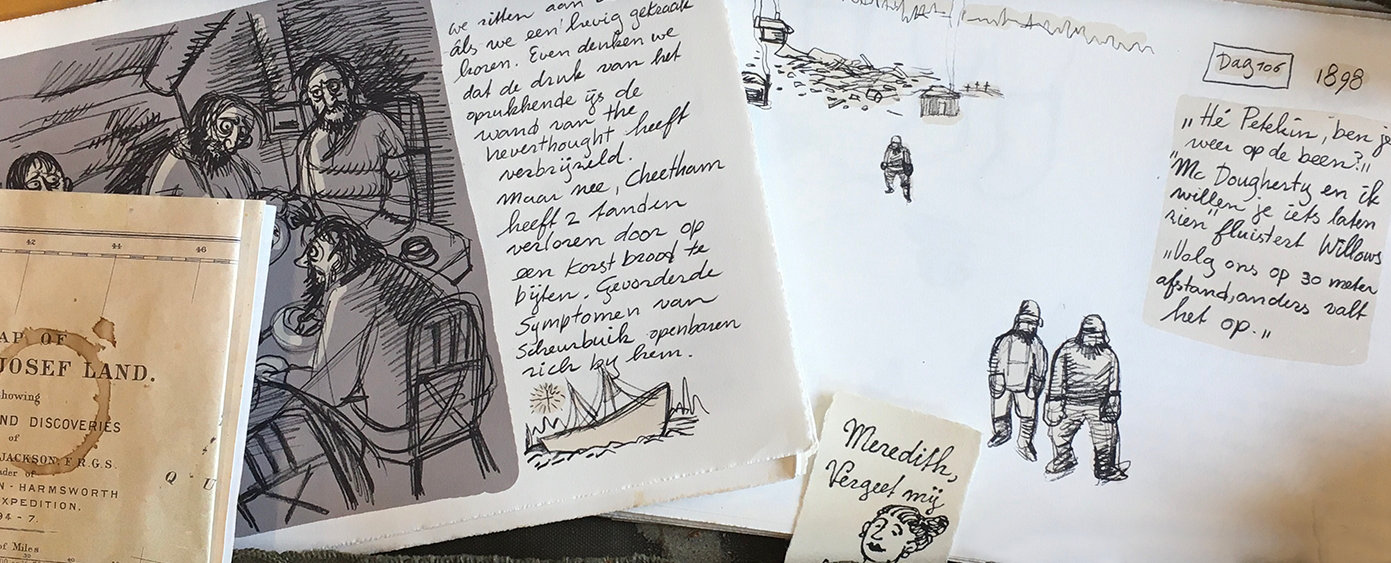 42 44 46
AP OF
JOSEF LAND.
howing
ND DISCOVERIES
of
JACKSON, F.R.G.S.
der of
N - HARMSWORTH
XPEDITION,
94 - 7.
of Miles
Q U
we zitten aan
als we een hevig gekraak
horen. Even denken we
dat de druk van het
oprukkende ijs de
wand van the
Neverthought heeft
verbrijzeld.
Maar nee, Cheetham
heeft 2 tanden
verloren door op
een korst brood te
bijten. Gevorderde
Symptomen van
Scheurbuik openbaren
zich by hem.
Dag 106 1898
„Hé Petelin, ben je
weer op de been?"
Mc Dougherty en ik
willen je iets laten
zien" fluistert Willows
„Volg ons op 30 meter
afstand, anders valt
het op."
Meredith,
Vergeet mij